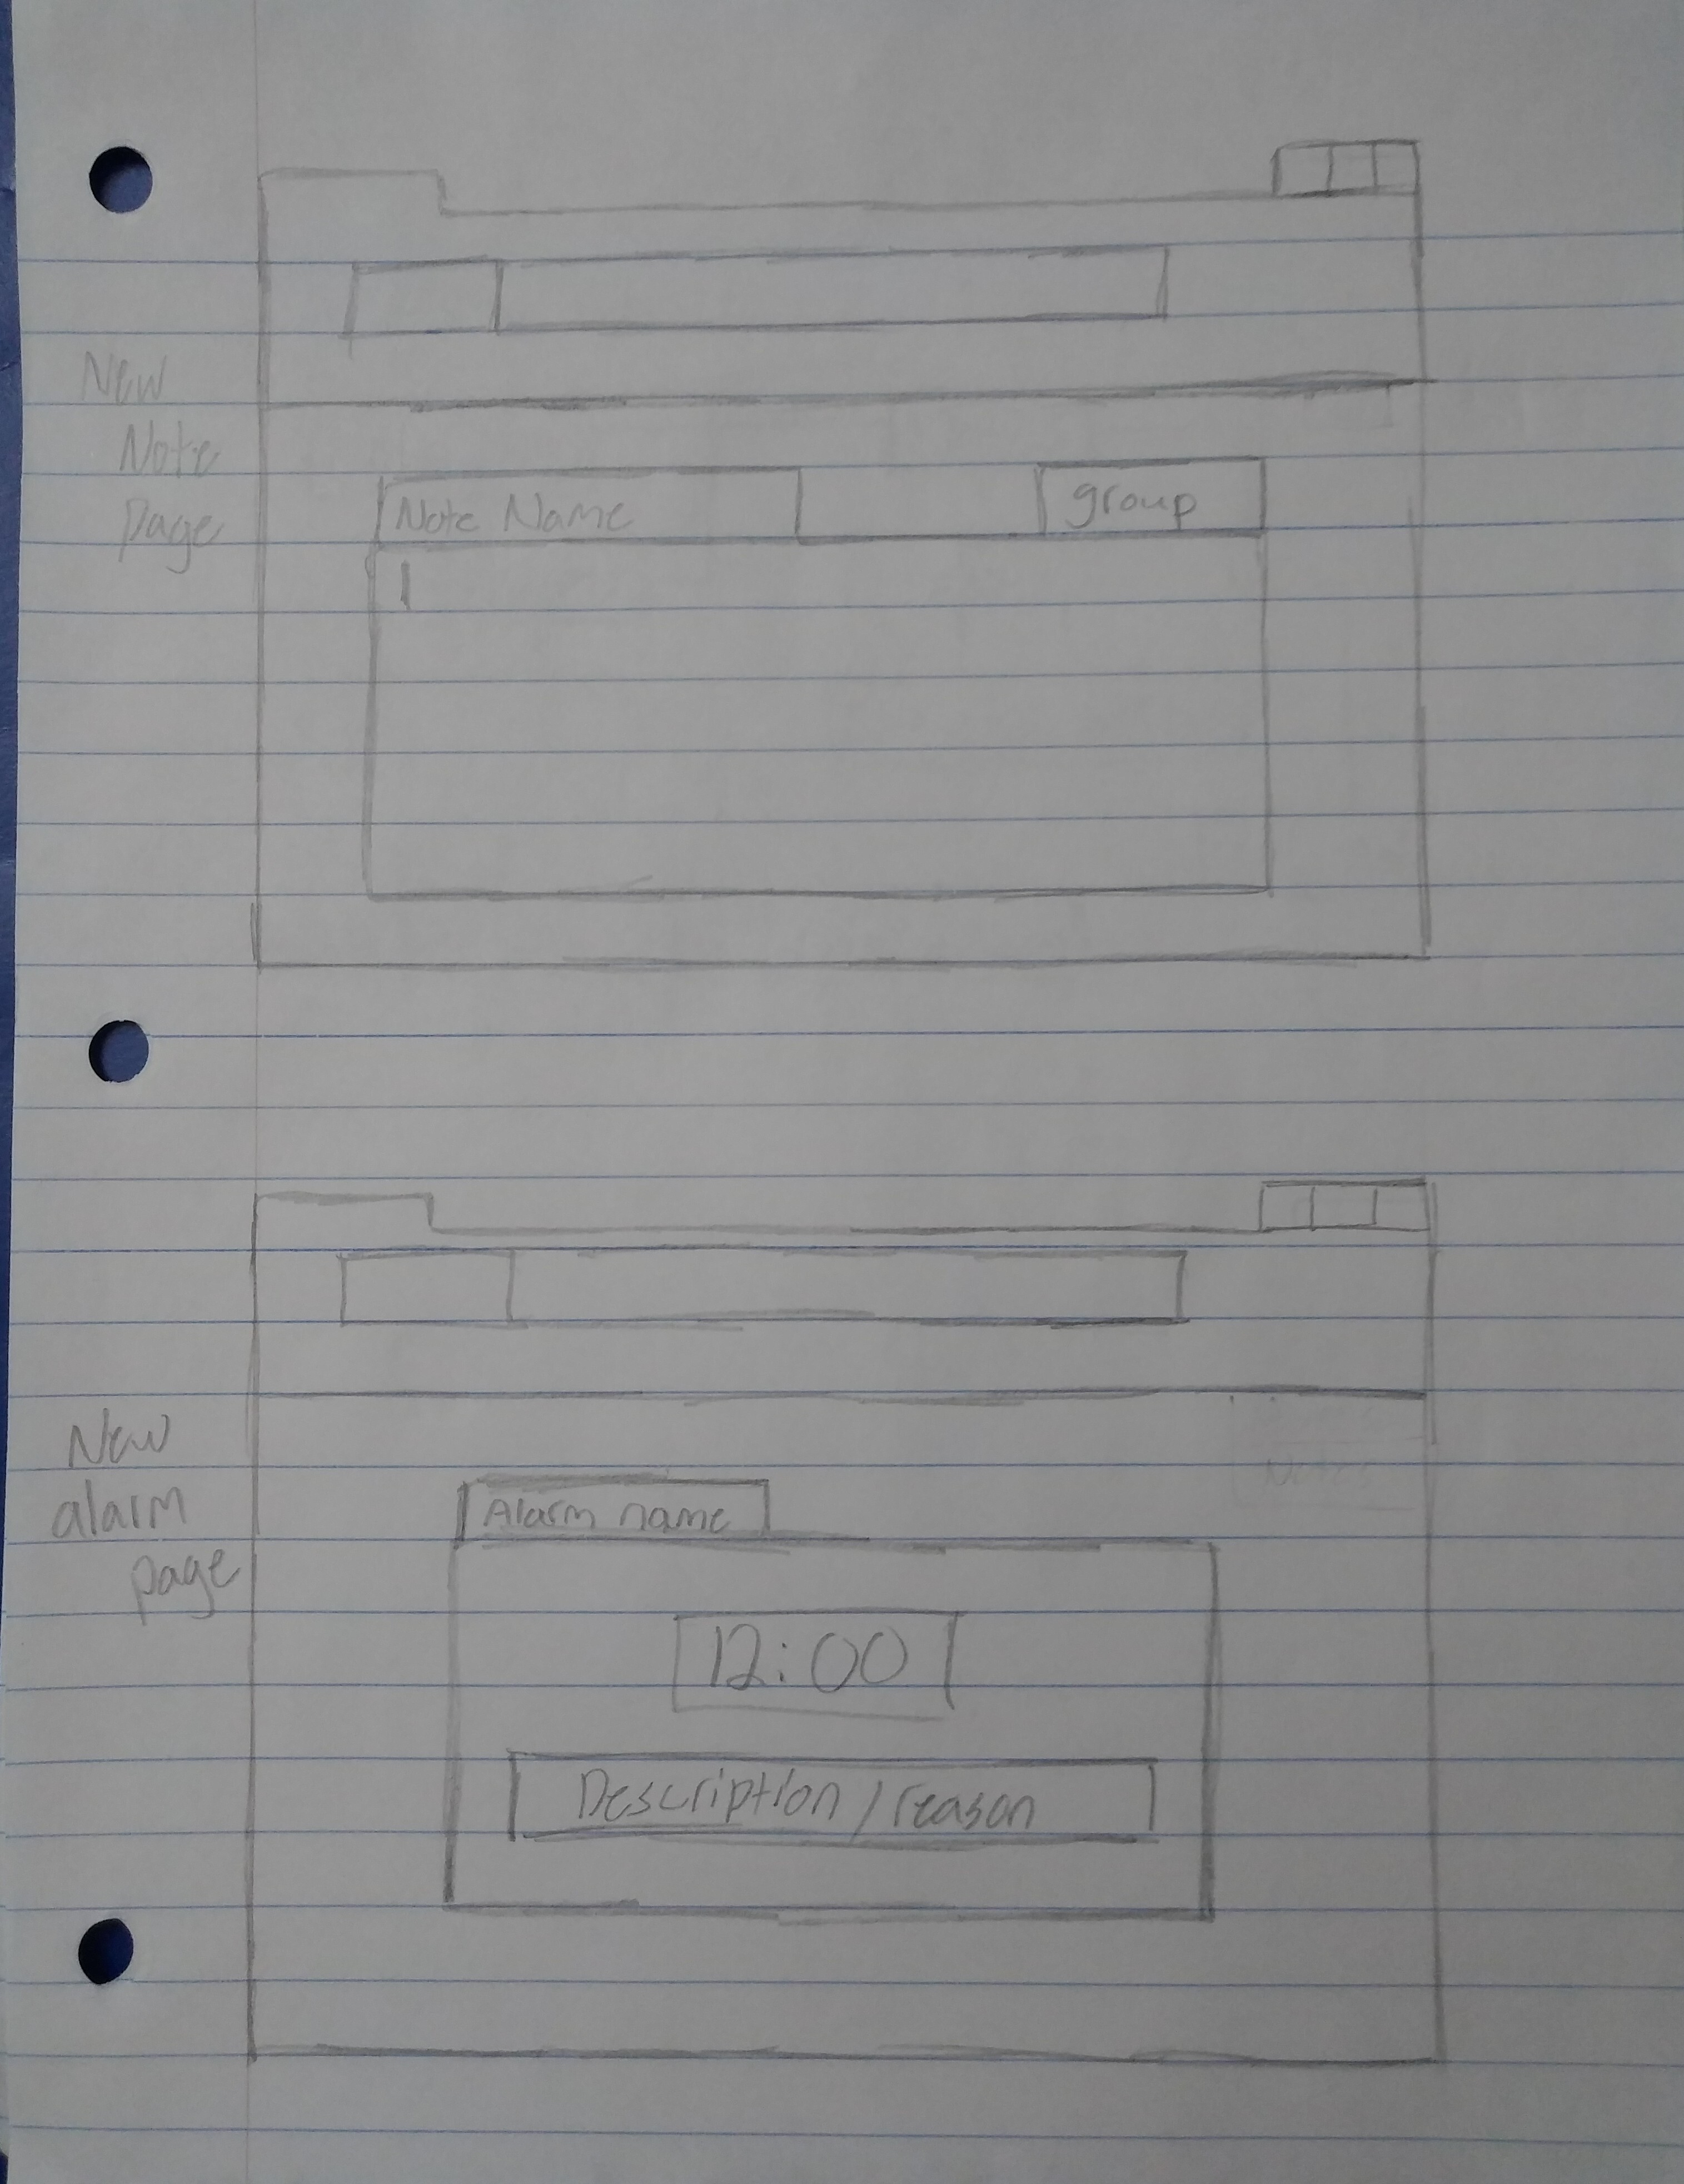 New
Note
page
Note Name
group
New
alarm
page
Alarm name
12:00
Description / reason